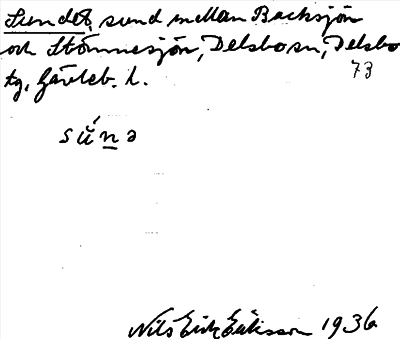 Sundet, sund mellan Backsjön
och Stömnesjön, Delsbo sn, Delsbo
tg, Gävleb. l.
73
sún̲ə
Nils Erik Eriksson 1936